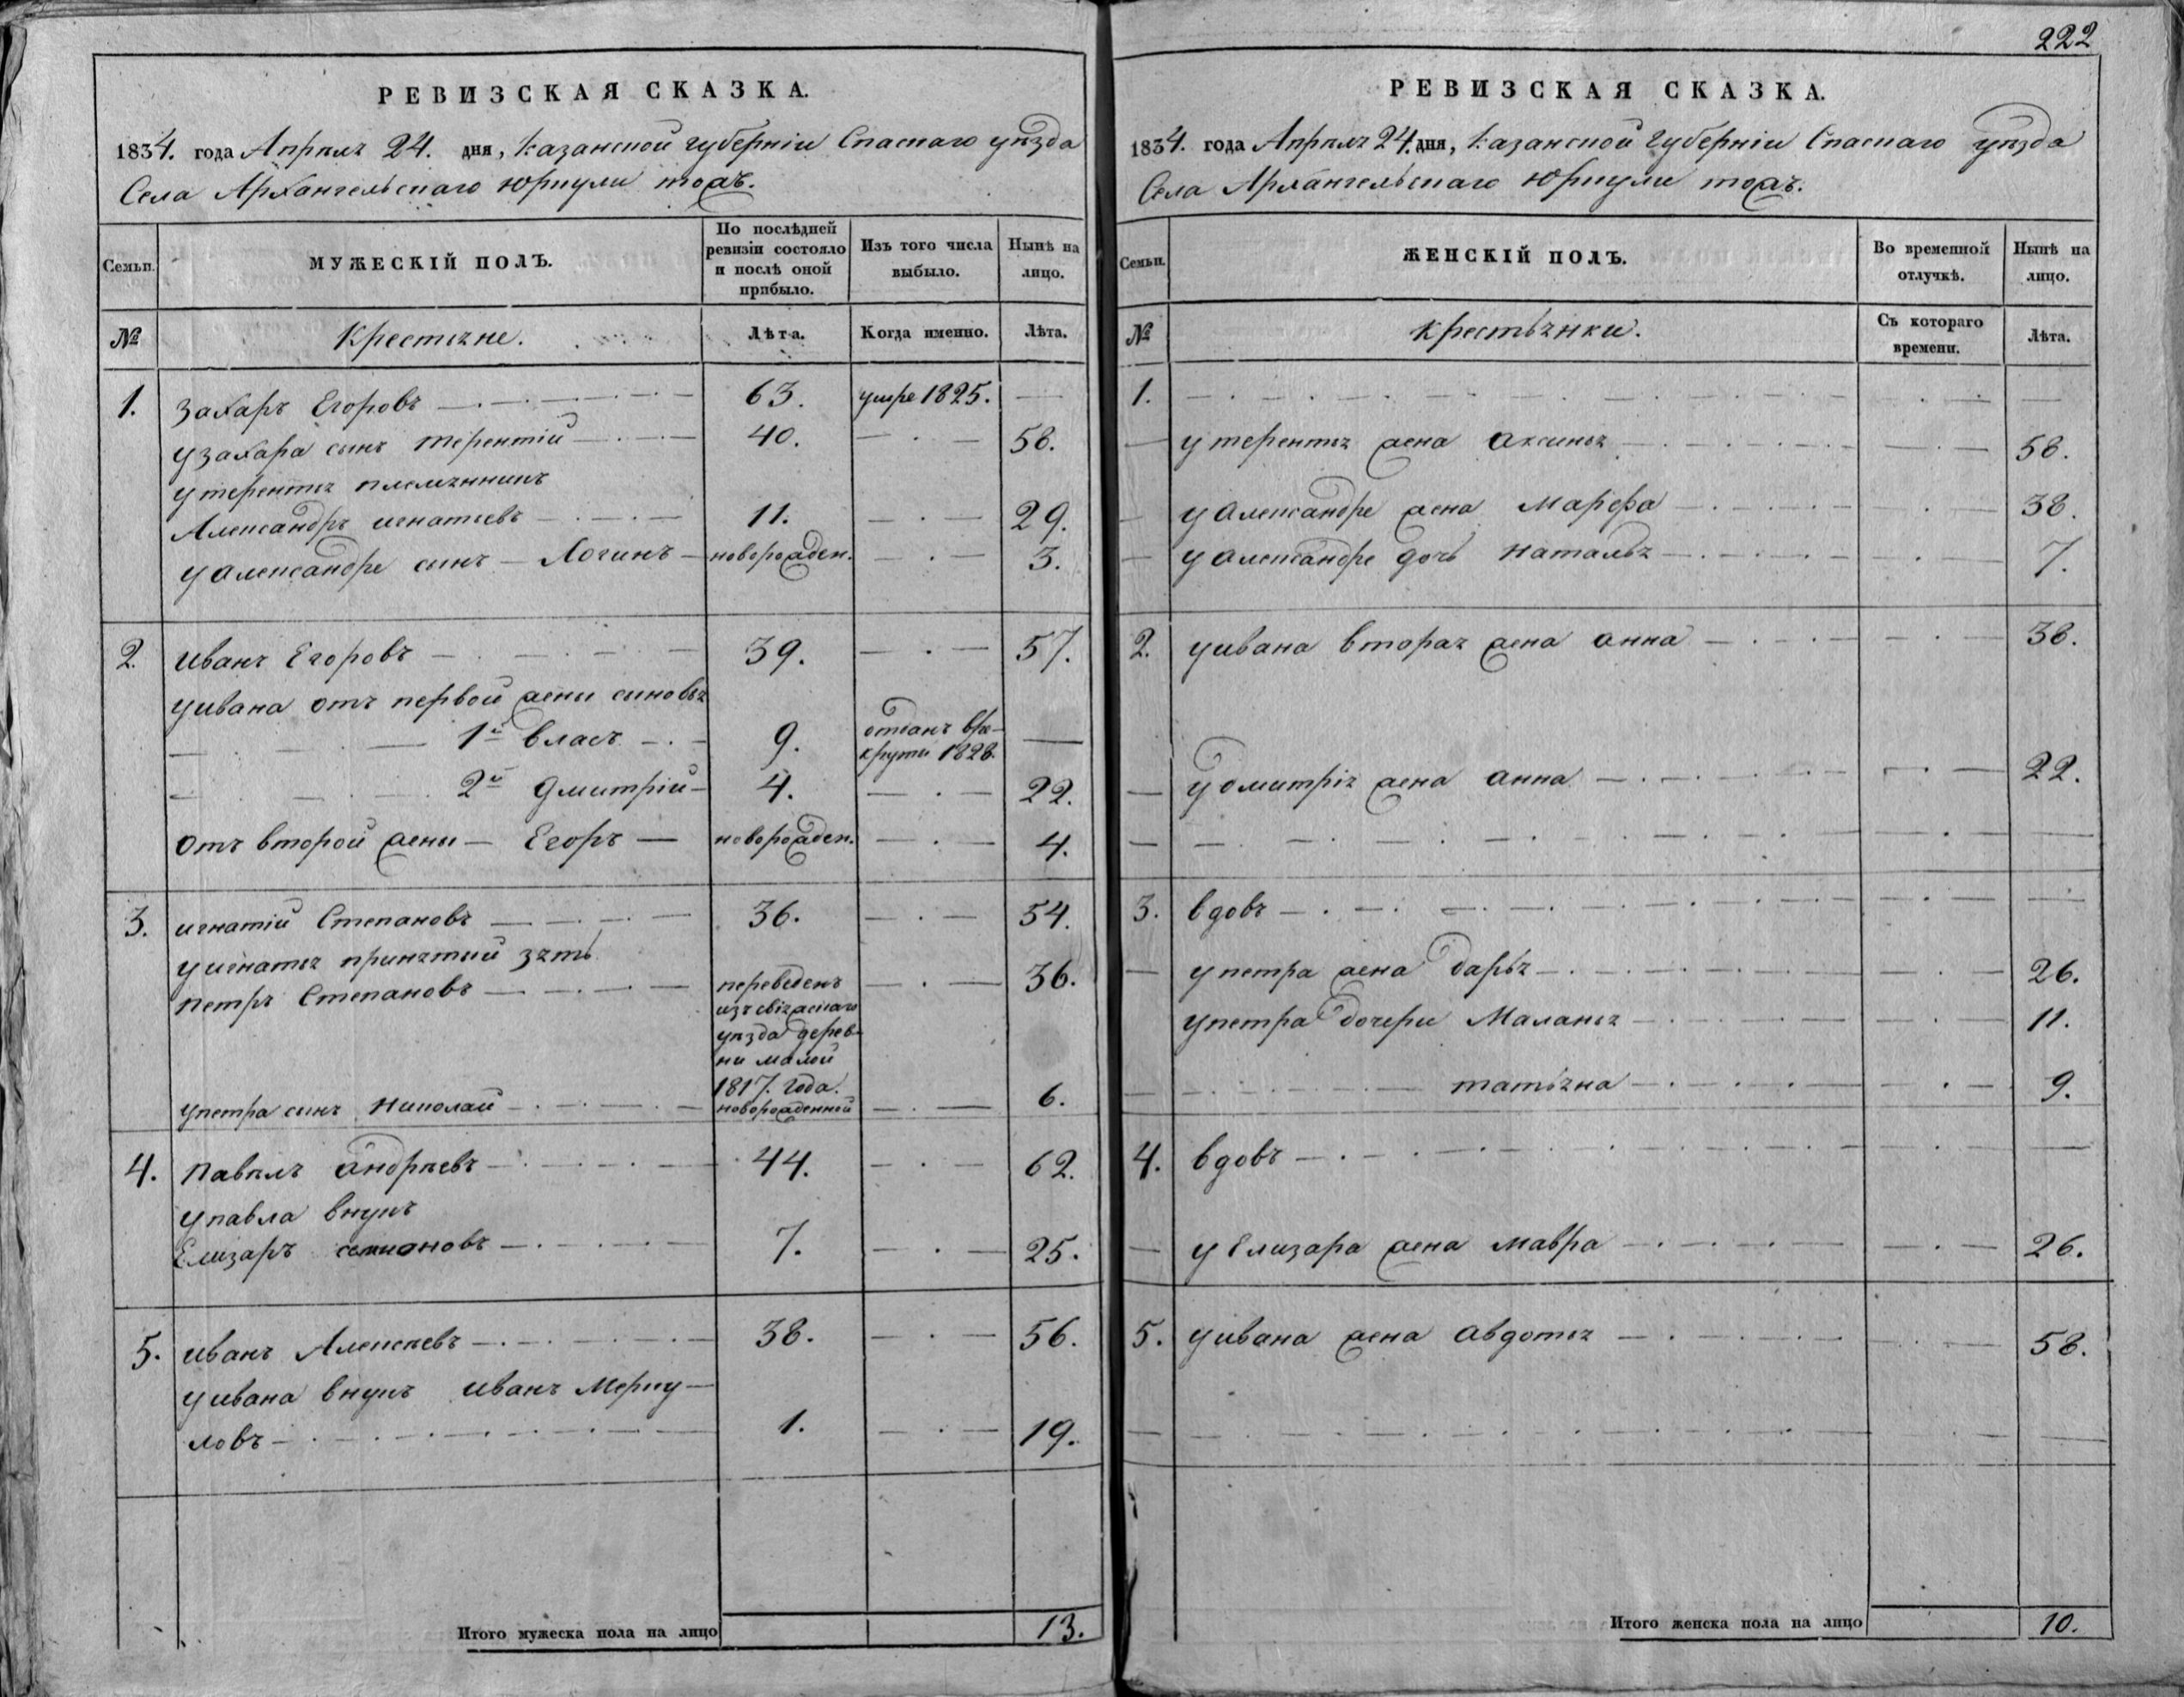 222
РЕВИЗСКАЯ СКАЗКА.
1834. года Апрѣля 24. дня, Казанской губерніи Спаскаго уѣзда
Села Архангельскаго Юркули тожъ.
Семьи.
МУЖЕСКІЙ ПОЛЪ.
По послѣдней ревизіи состояло и послѣ оной прибыло.
Изъ того числа выбыло.
Нынѣ на лицо.
№
Крестьяне.
Лѣта.
Когда именно.
Лѣта.
1. Захаръ Егоровъ — 63. умре 1825. —
у Захара сынъ Терентій — 40. — 58.
у Терентья племянникъ
Александръ Игнатьевъ — 11. — 29.
у Александре сынъ — Логинъ — новорожден. — 3.
2. Иванъ Егоровъ — 39. — 57.
у Ивана отъ первой жены сыновья
1й Власъ — 9. отданъ в рекруты 1828. —
2й Дмитрій — 4. — 22.
отъ второй жены — Егоръ — новорожден. — 4.
3. Игнатій Степановъ — 36. — 54.
у Игнатья принятый зять
Петръ Степановъ — переведенъ — 36.
изъ свіяжскаго
уѣзда дерев-
ни малой
1817. года.
у Петра сынъ Николай — новорожденной — 6.
4. Павелъ Андреевъ — 44. — 62.
у Павла внукъ
Елизаръ Семионовъ — 7. — 25.
5. Иванъ Алексѣевъ — 38. — 56.
у Ивана внукъ Иванъ Мерку-
ловъ — 1. — 19.
Итого мужеска пола на лицо 13.
РЕВИЗСКАЯ СКАЗКА.
1834. года Апрѣля 24. дня, Казанской губерніи Спаскаго уѣзда
Села Архангельскаго Юркули тожъ.
Семьи.
ЖЕНСКІЙ ПОЛЪ.
Во временной отлучкѣ.
Нынѣ на лицо.
№
Крестьянки.
Съ котораго времени.
Лѣта.
1. —
у Терентья жена Аксинья — 58.
у Александре жена Марефа — 38.
у Александре дочь Наталья — 7.
2. у Ивана вторая жена Анна — 38.
у Дмитрія жена Анна — 22.
3. вдовъ —
у Петра жена Дарья — 26.
у Петра дочери Маланья — 11.
Татьяна — 9.
4. вдовъ —
у Елизара жена Мавра — 26.
5. у Ивана жена Авдотья — 58.
Итого женска пола на лицо 10.